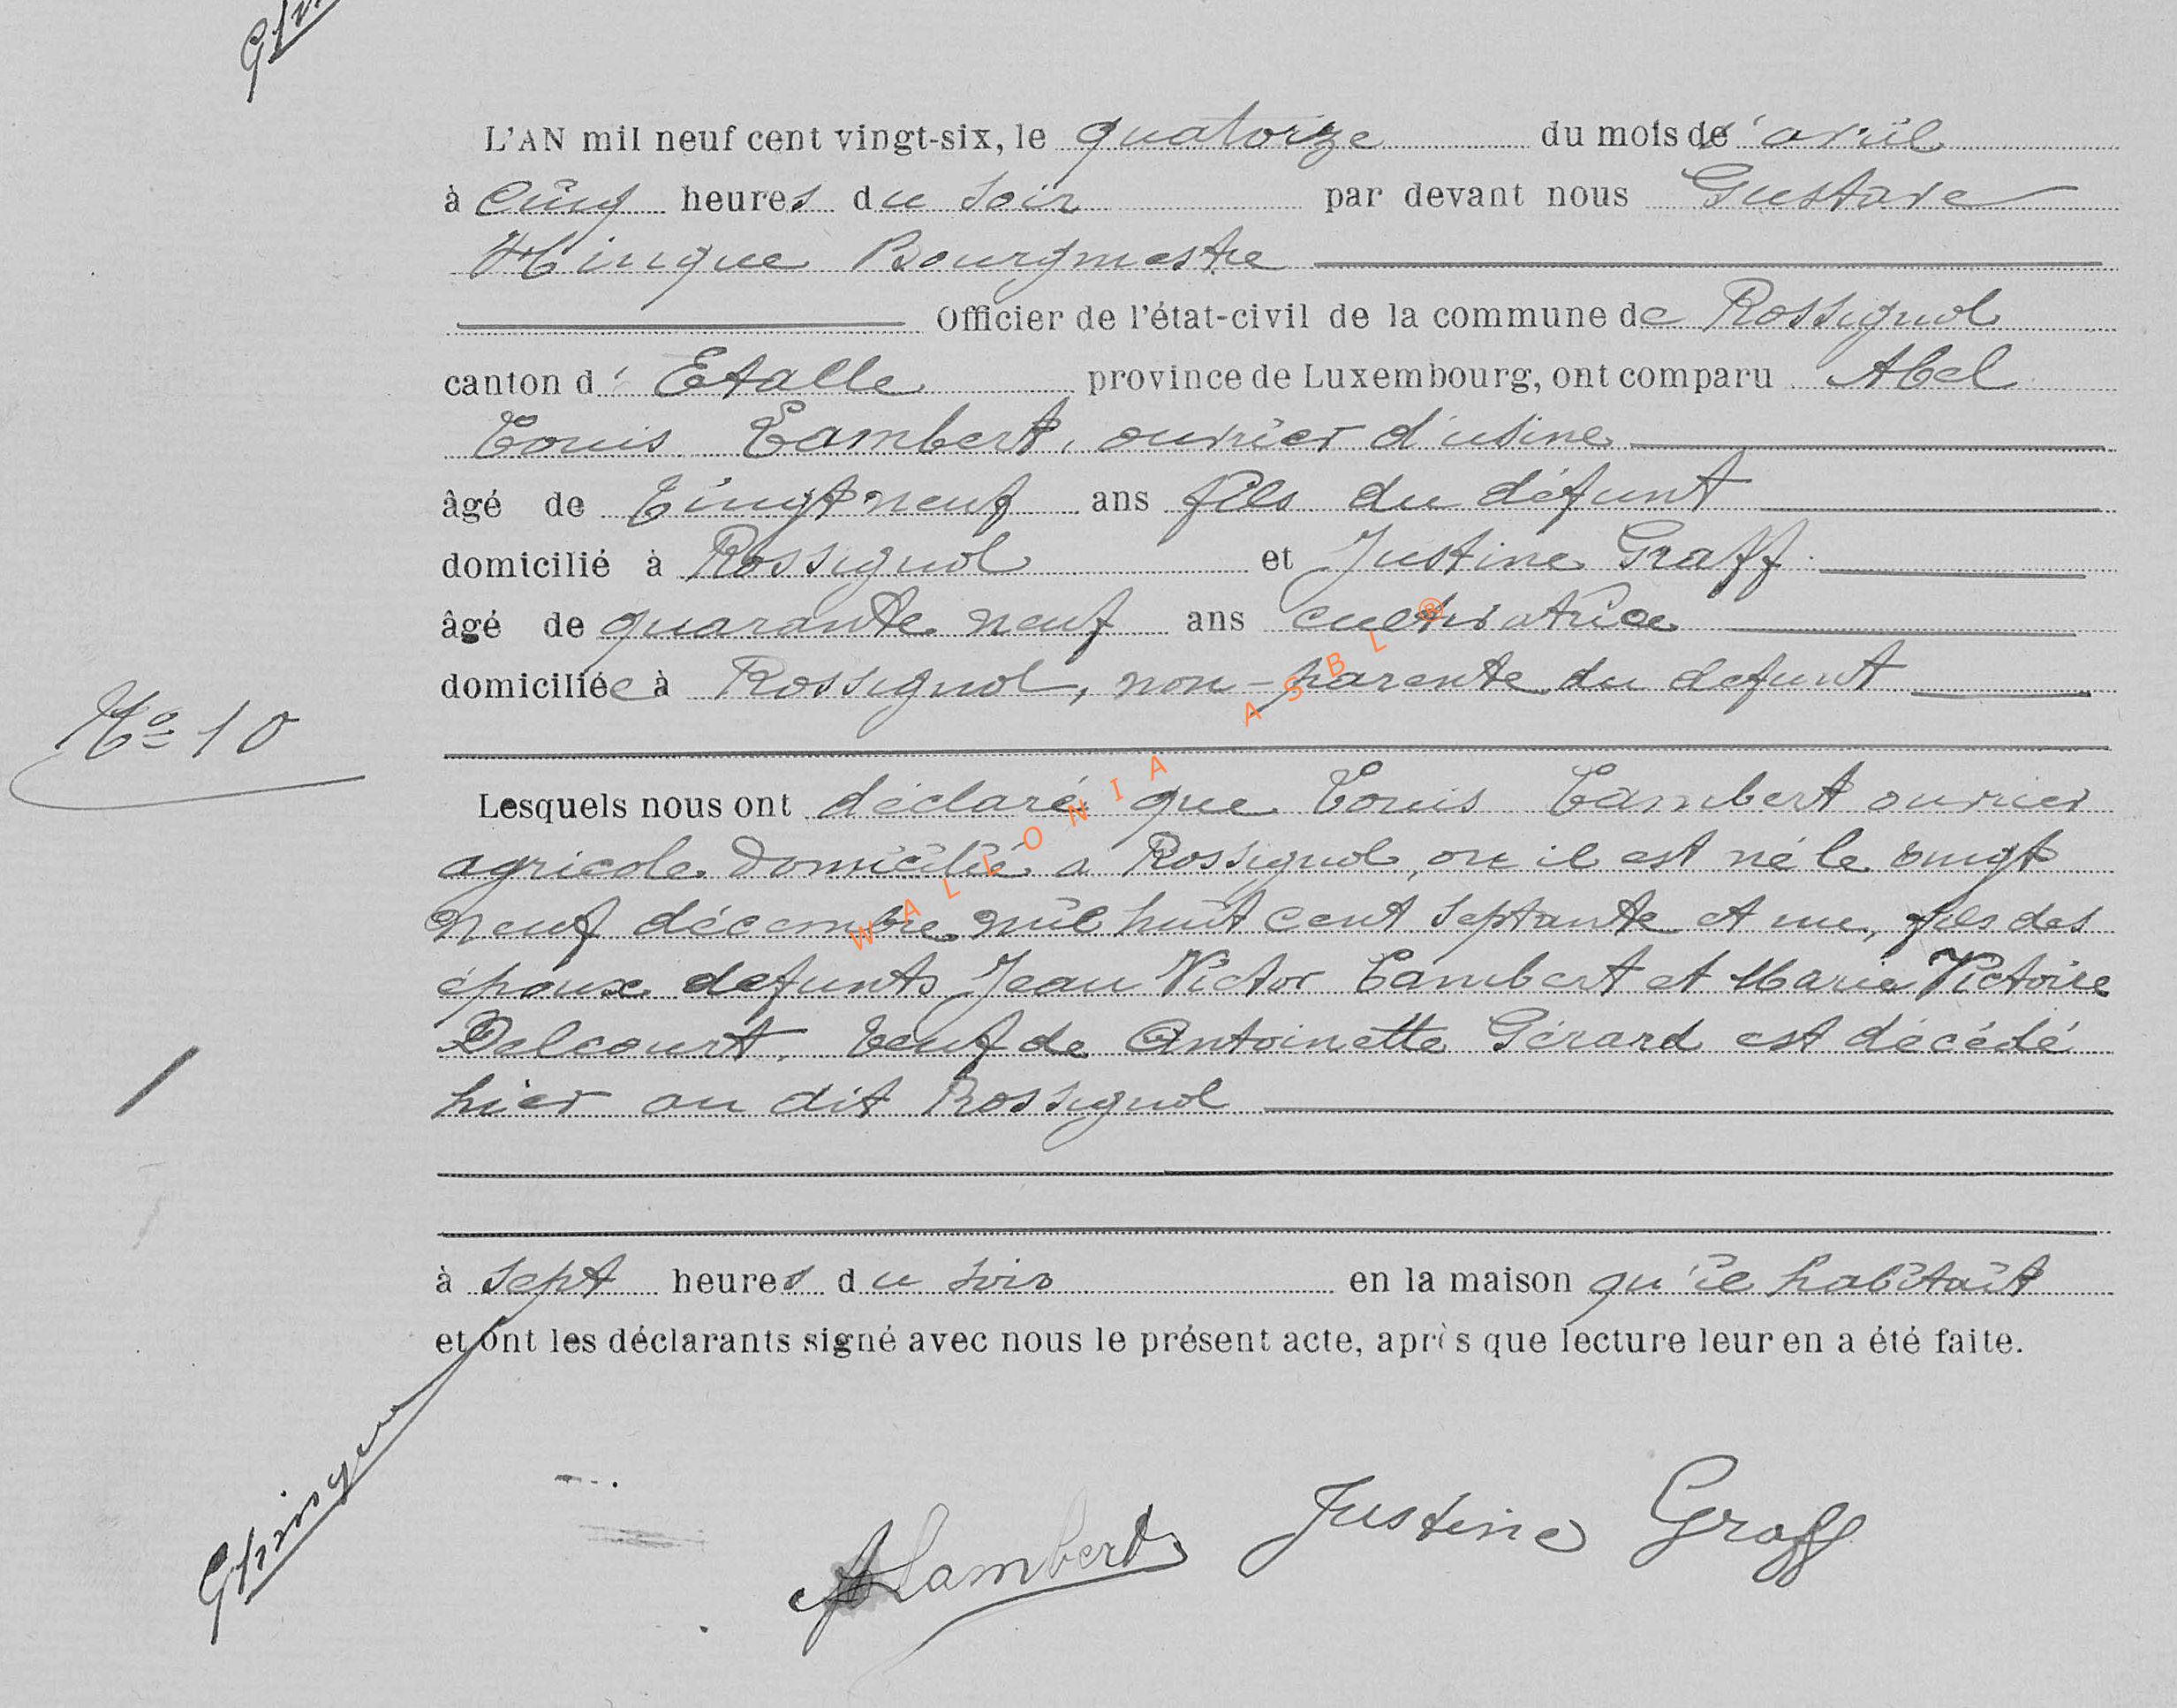 L'AN mil neuf cent vingt-six, le quatorze du mois d'avril
à cinq heures du soir par devant nous Gustave
Hinque Bourgmestre
Officier de l'état-civil de la commune de Rossignol
canton d'Etalle province de Luxembourg, ont comparu Abel
Louis Lambert, ouvrier d'usine
âgé de vingt neuf ans fils du défunt
domicilié à Rossignol et Justine Graff
âgé de quarante neuf ans cultivatrice
domiciliée à Rossignol, non-parente du defunt
No 10
Lesquels nous ont déclaré que Louis Lambert ouvrier
agricole domicilié a Rossignol, ou il est né le vingt
neuf décembre mil huit cent septante et un, fils des
époux defunts Jean Victor Lambert et Marie Victoire
Delcourt, veuf de Antoinette Gérard est décédé
hier au dit Rossignol
à sept heures du soir en la maison qu'il habitait
et ont les déclarants signé avec nous le présent acte, après que lecture leur en a été faite.
GHinque
ALambert Justine Graff
WALLONIA ASBL ®